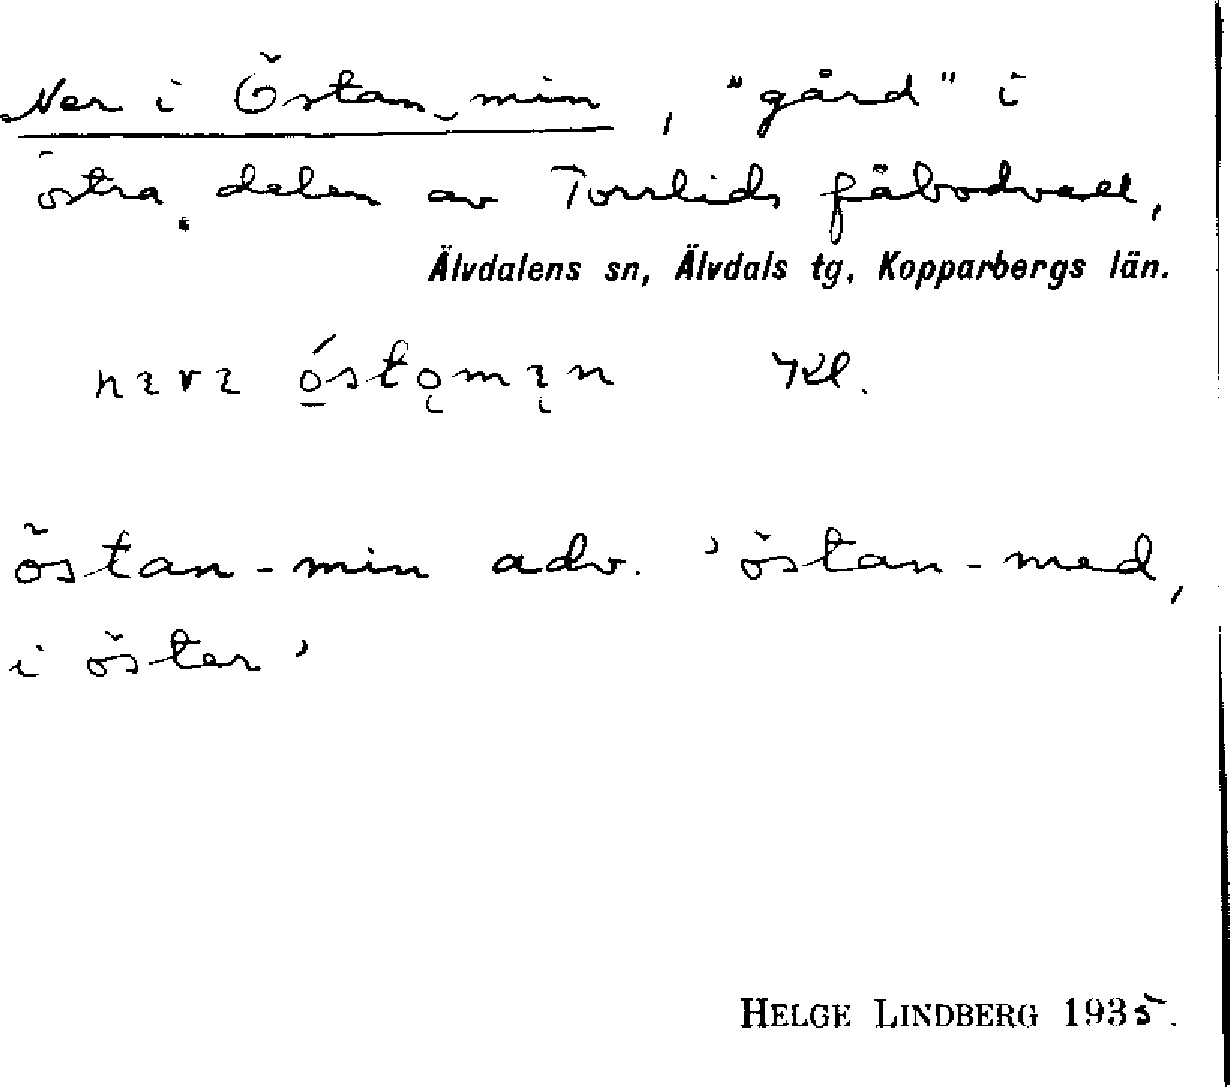 Ner i Östan‿min, "gård" i
östra delen av Torrlids fäbodvall,
Älvdalens sn, Älvdals tg, Kopparbergs län.
östan-min adv. 'östan-med,
i öster'
HELGE LINDBERG 1935.